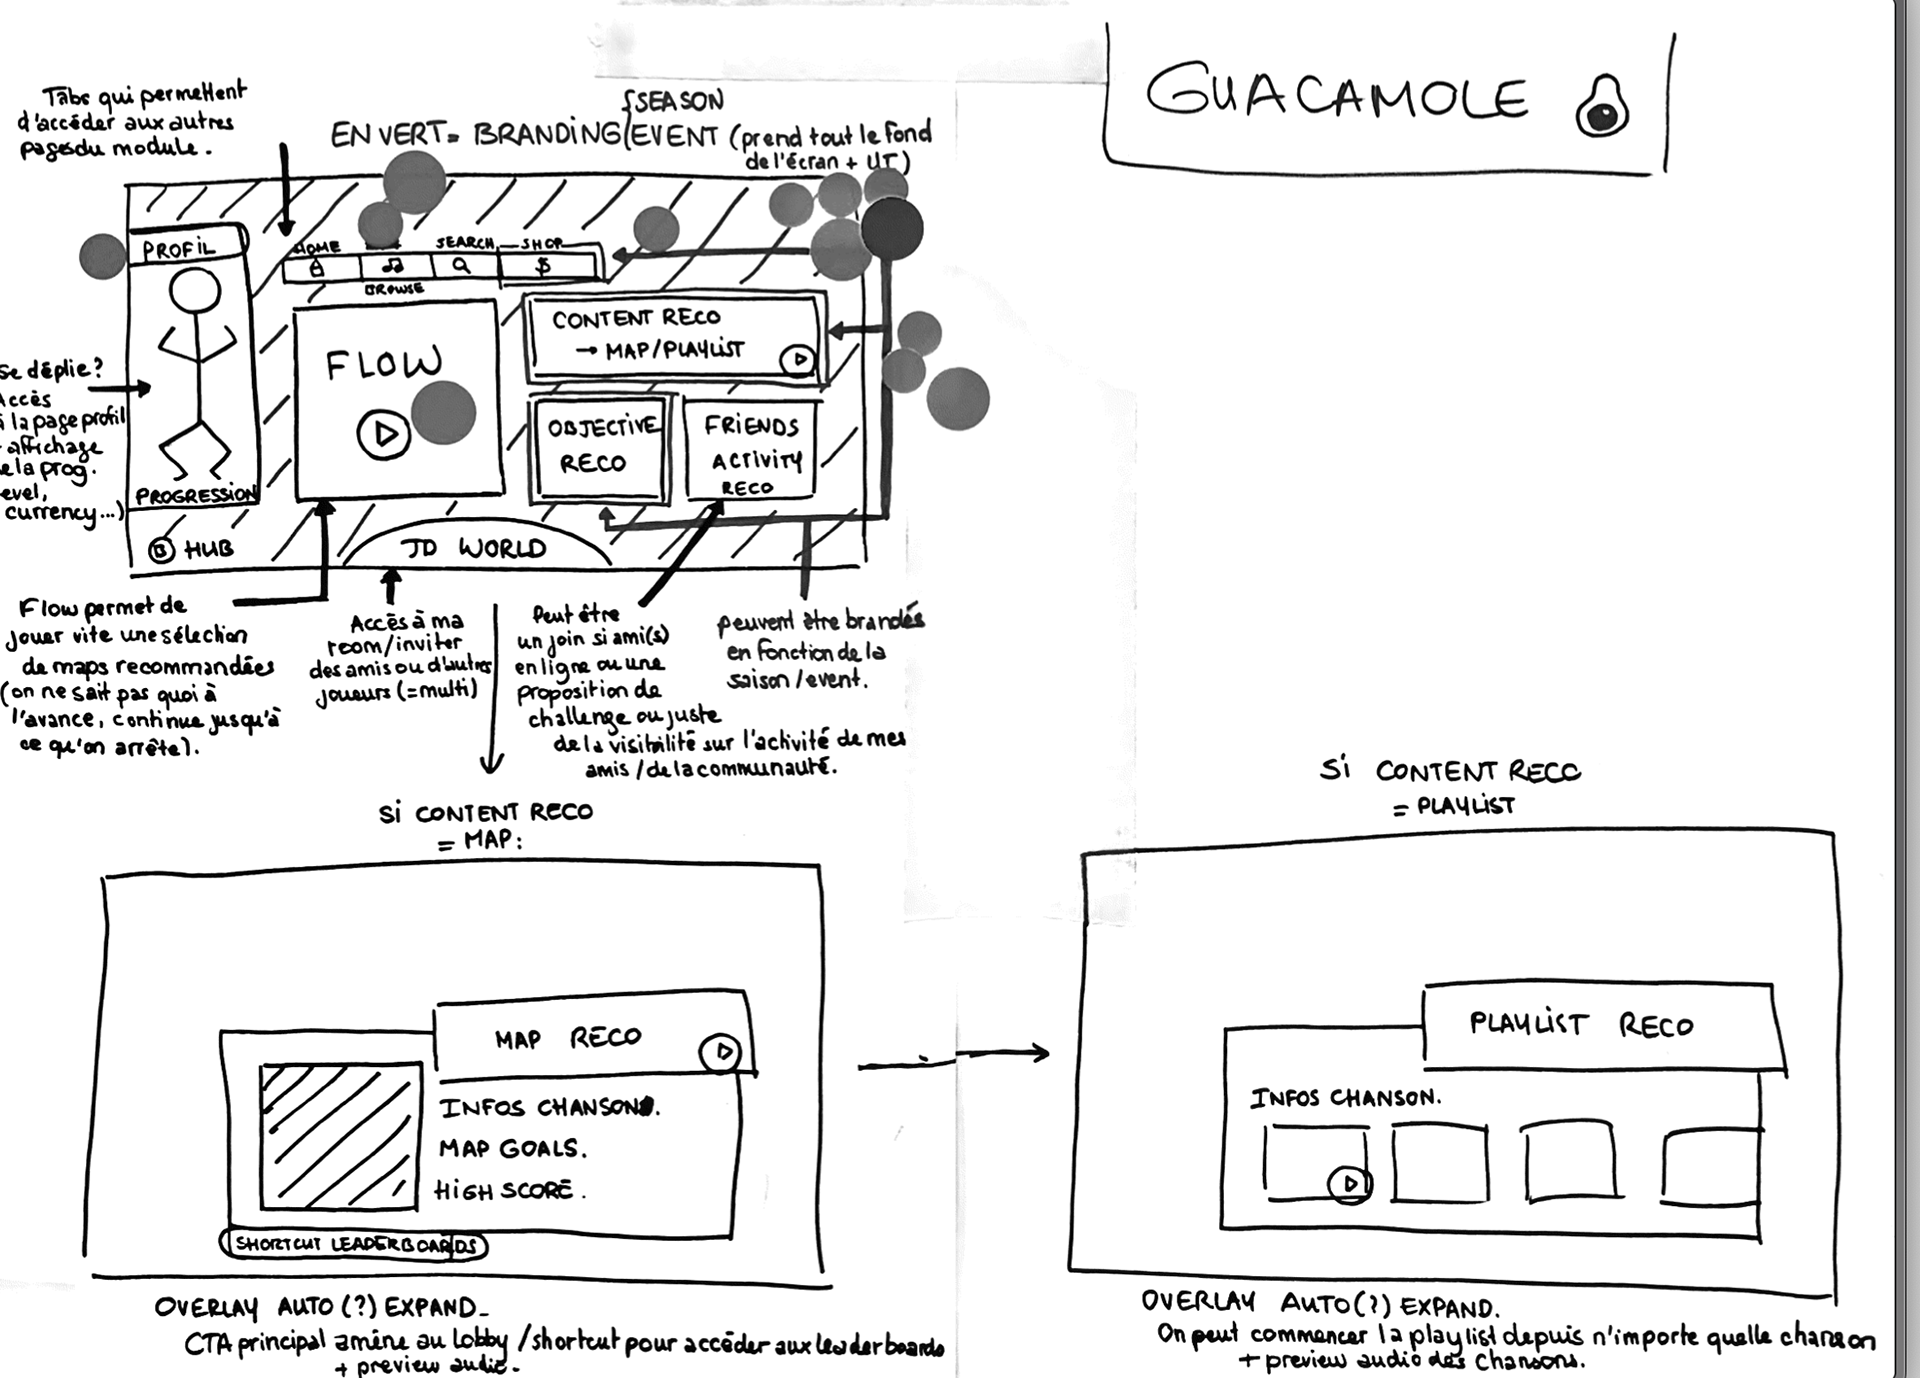 GUACAMOLE
Tabs qui permettent
d'accéder aux autres
pages du module.
{SEASON
EN VERT = BRANDING {EVENT (prend tout le fond
de l'écran + UI)
PROFIL
HOME
SEARCH
SHOP
$
BROWSE
FLOW
CONTENT RECO
→ MAP/PLAYLIST
OBJECTIVE
RECO
FRIENDS
ACTIVITY
RECO
PROGRESSION
B HUB
JD WORLD
se déplie?
Accès
à la page profil
+ affichage
de la prog.
level,
currency...)
Flow permet de
jouer vite une sélection
de maps recommandées
(on ne sait pas quoi à
l'avance, continue jusqu'à
ce qu'on arrête).
Accès à ma
room/inviter
des amis ou d'autres
joueurs (=multi)
Peut être
un join si ami(s)
en ligne ou une
proposition de
challenge ou juste
de la visibilité sur l'activité de mes
amis / de la communauté.
peuvent être brandés
en fonction de la
saison / event.
Si CONTENT RECO
= MAP:
MAP RECO
INFOS CHANSON.
MAP GOALS.
HIGH SCORE.
SHORTCUT LEADERBOARDS
OVERLAY AUTO (?) EXPAND_
CTA principal amène au lobby / shortcut pour accéder aux leaderboards
+ preview audio.
Si CONTENT RECO
= PLAYLIST
PLAYLIST RECO
INFOS CHANSON.
OVERLAY AUTO(?) EXPAND.
On peut commencer la playlist depuis n'importe quelle chanson
+ preview audio des chansons.